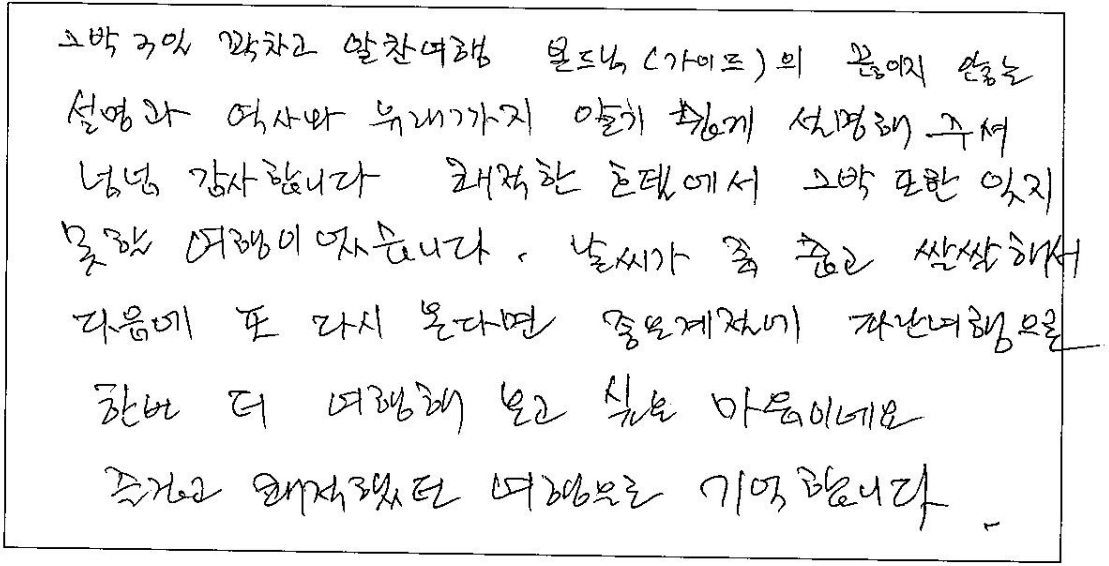 2박 3일 꽉차고 알찬여행 본드님(가이드)의 끊이지 않는
설명과 역사와 유래까지 알기 쉽게 설명해 주셔
넘넘 감사합니다 쾌적한 호텔에서 2박 또한 잊지
못할 여행이었습니다. 날씨가 좀 춥고 쌀쌀해서
다음에 또 다시 온다면 좋은계절에 자난여행으로
한번 더 여행해 보고 싶은 마음이네요
즐겁고 쾌적했던 여행으로 기억합니다.